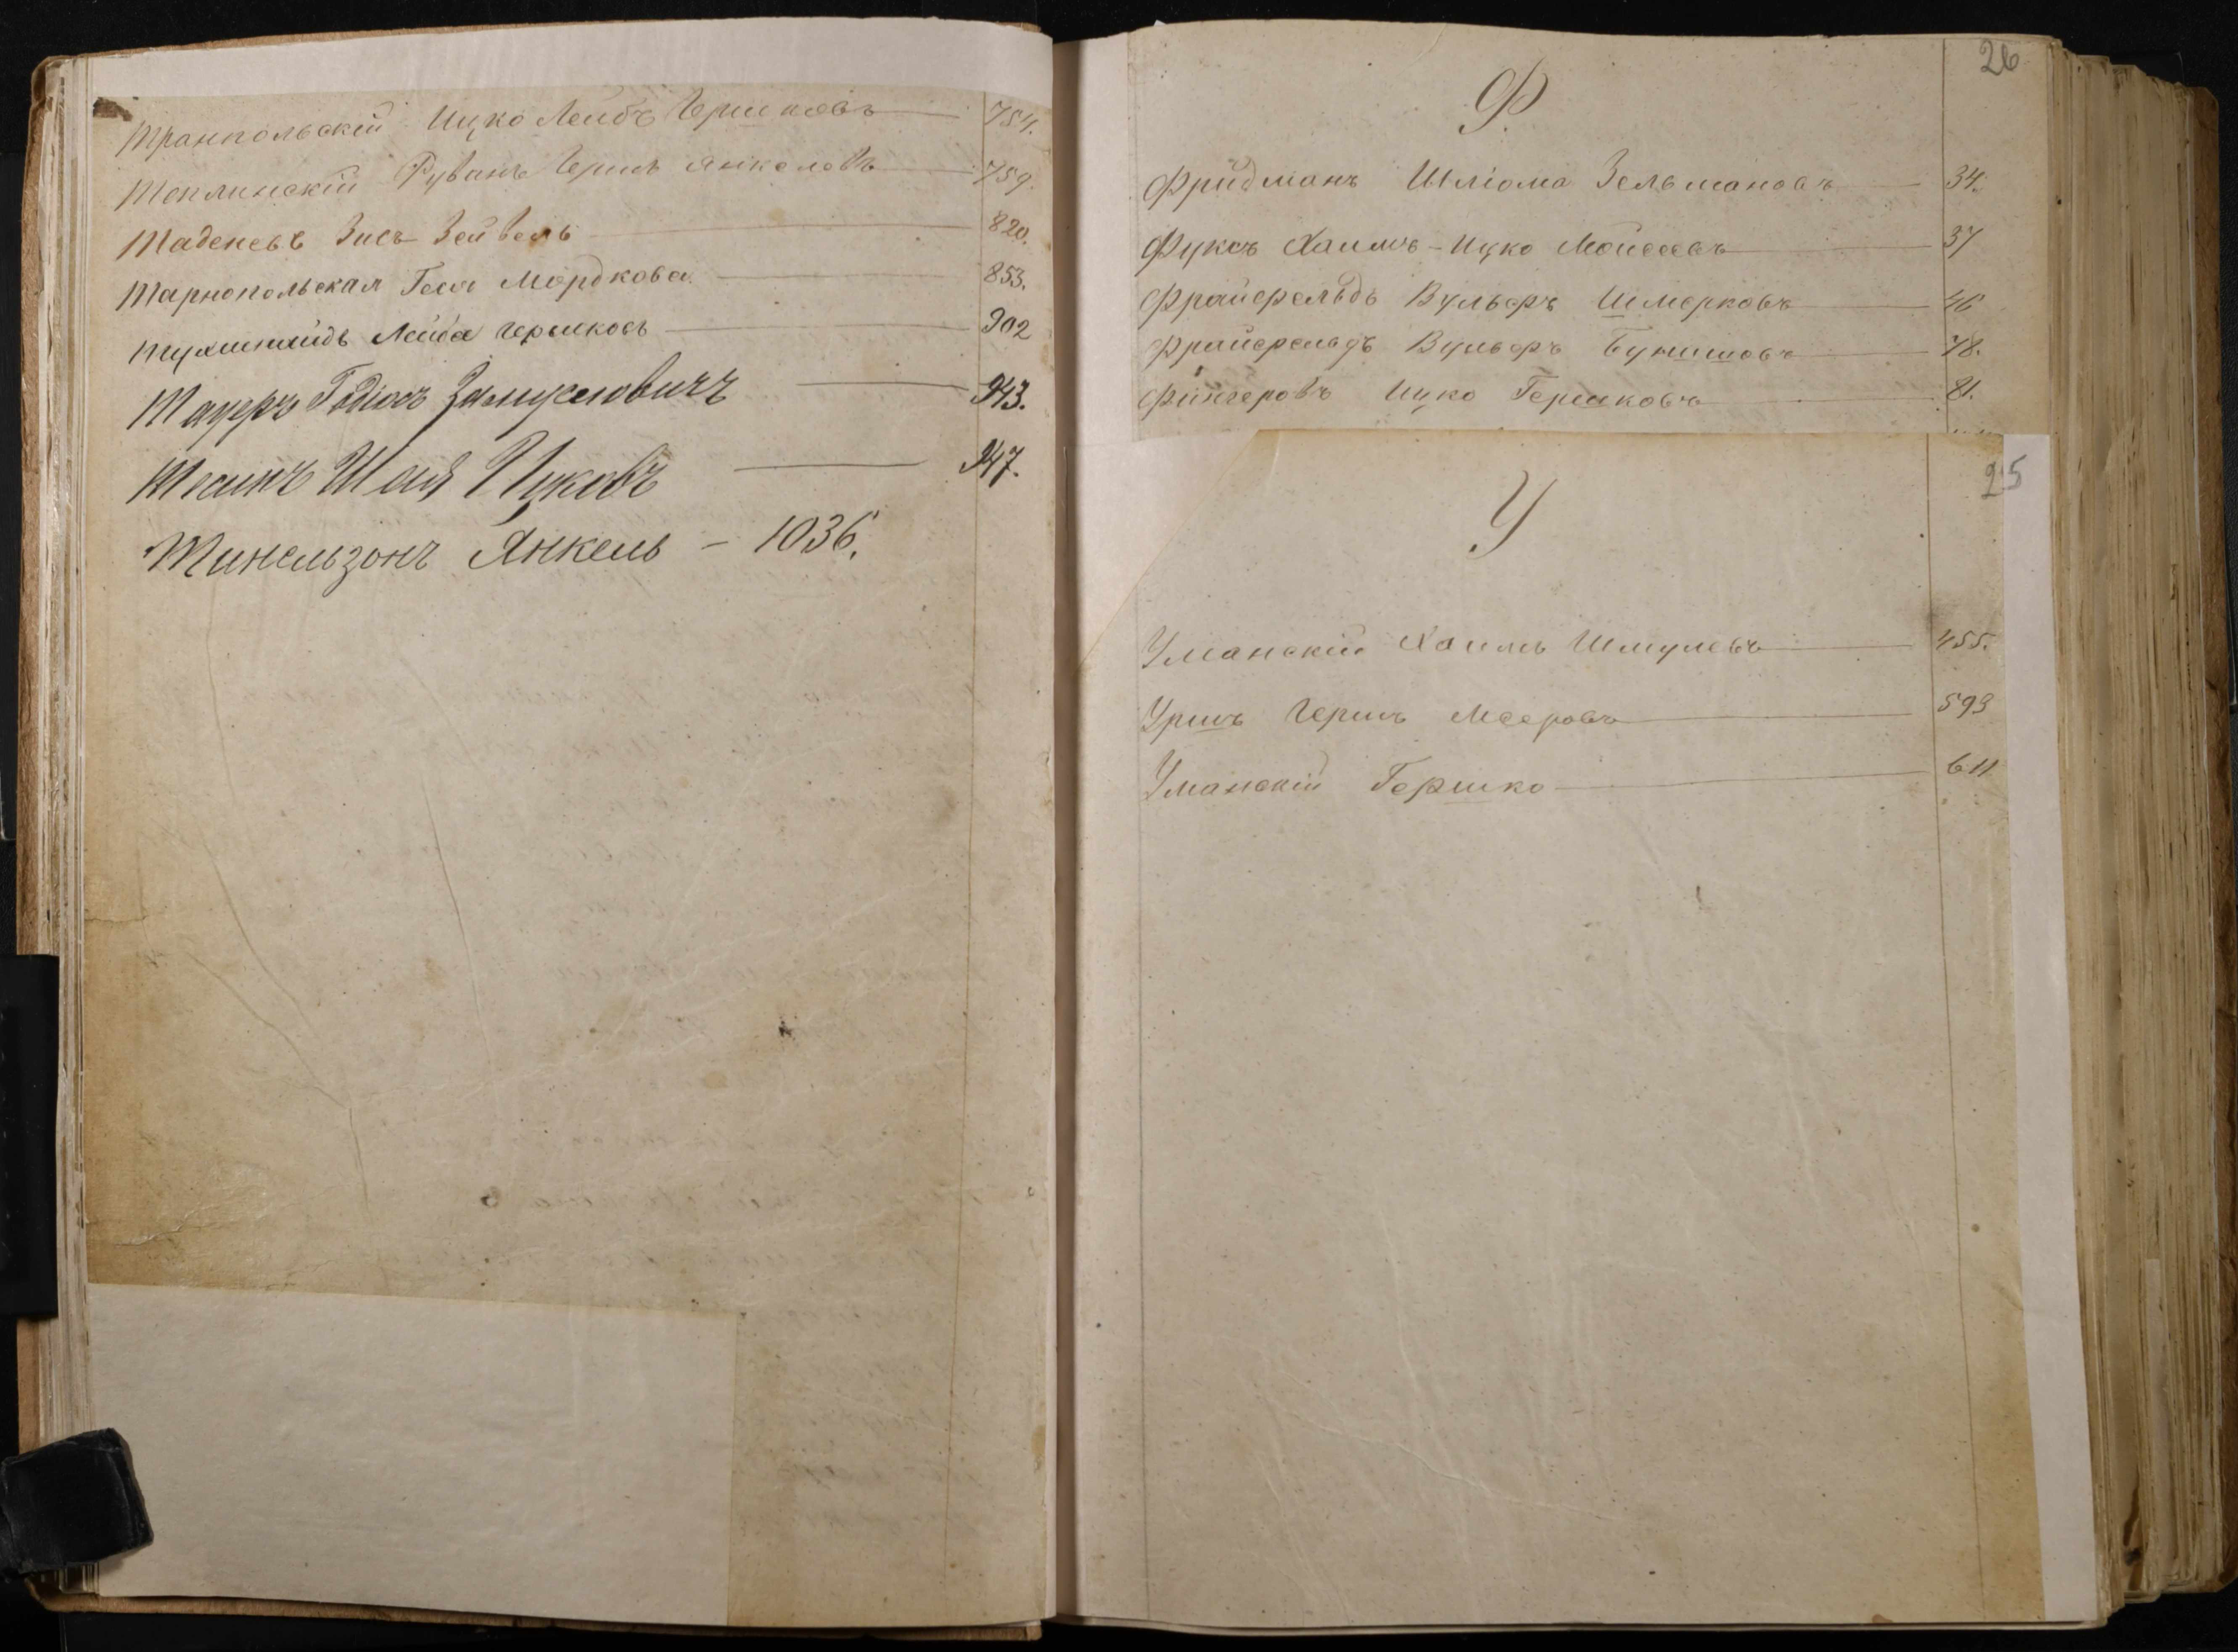 Транпольскій Ицко Лейбъ Гершковъ 754.
Теплинскій Рувинъ Гершъ Янкелевъ 759.
Таденевъ Зисъ Зейвель 820.
Тарнопольская Геся Мордкова 853.
Лейба Гершковъ 902
Тауеръ 943.
Шая Ицковъ 947.
Тинельзонъ Янкель – 1036.
26
Ф
Фридманъ Шліома Зельмановъ 34.
Фуксъ Хаимъ-Ицко Мойсеевъ 37
Фрайфельдъ Вульфъ Шмерковъ 46
Фрайфельдъ Вульфъ Бунимовъ 78.
Фингеровъ Ицко Гершковъ 81.
25
У
Уманскій Хаимъ Шмулевъ 455.
Уришъ Гершъ Мееровъ 593
Уманскій Гершко 611